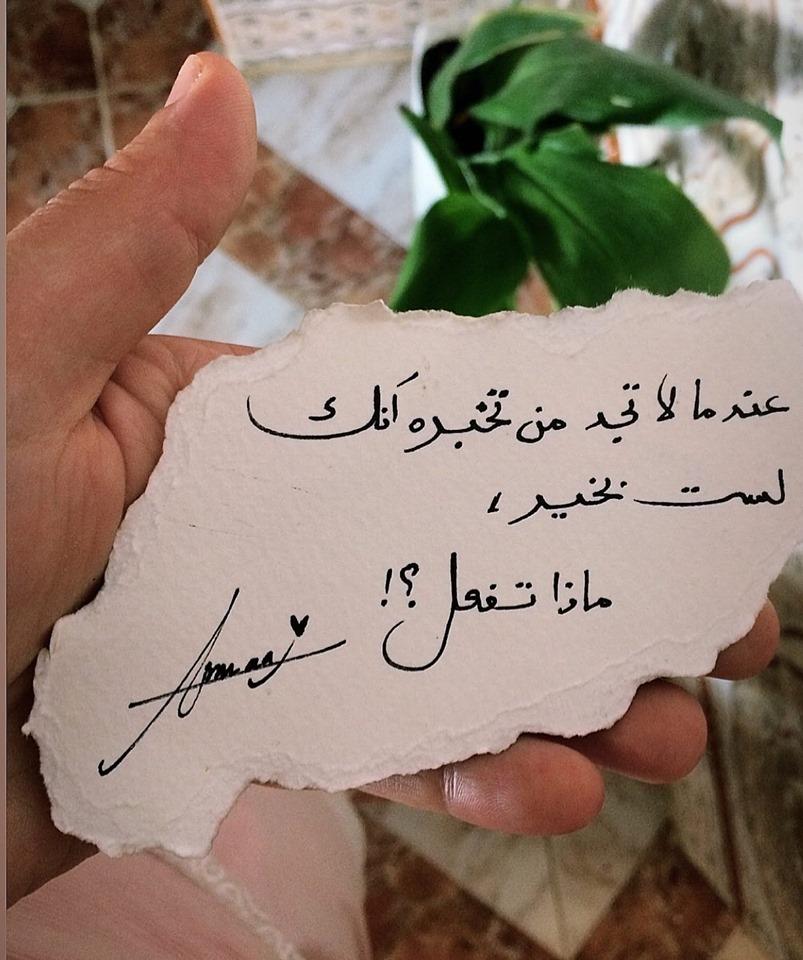 عندما لا تجد من تخبره أنك
لست بخير،
ماذا تفعل؟!